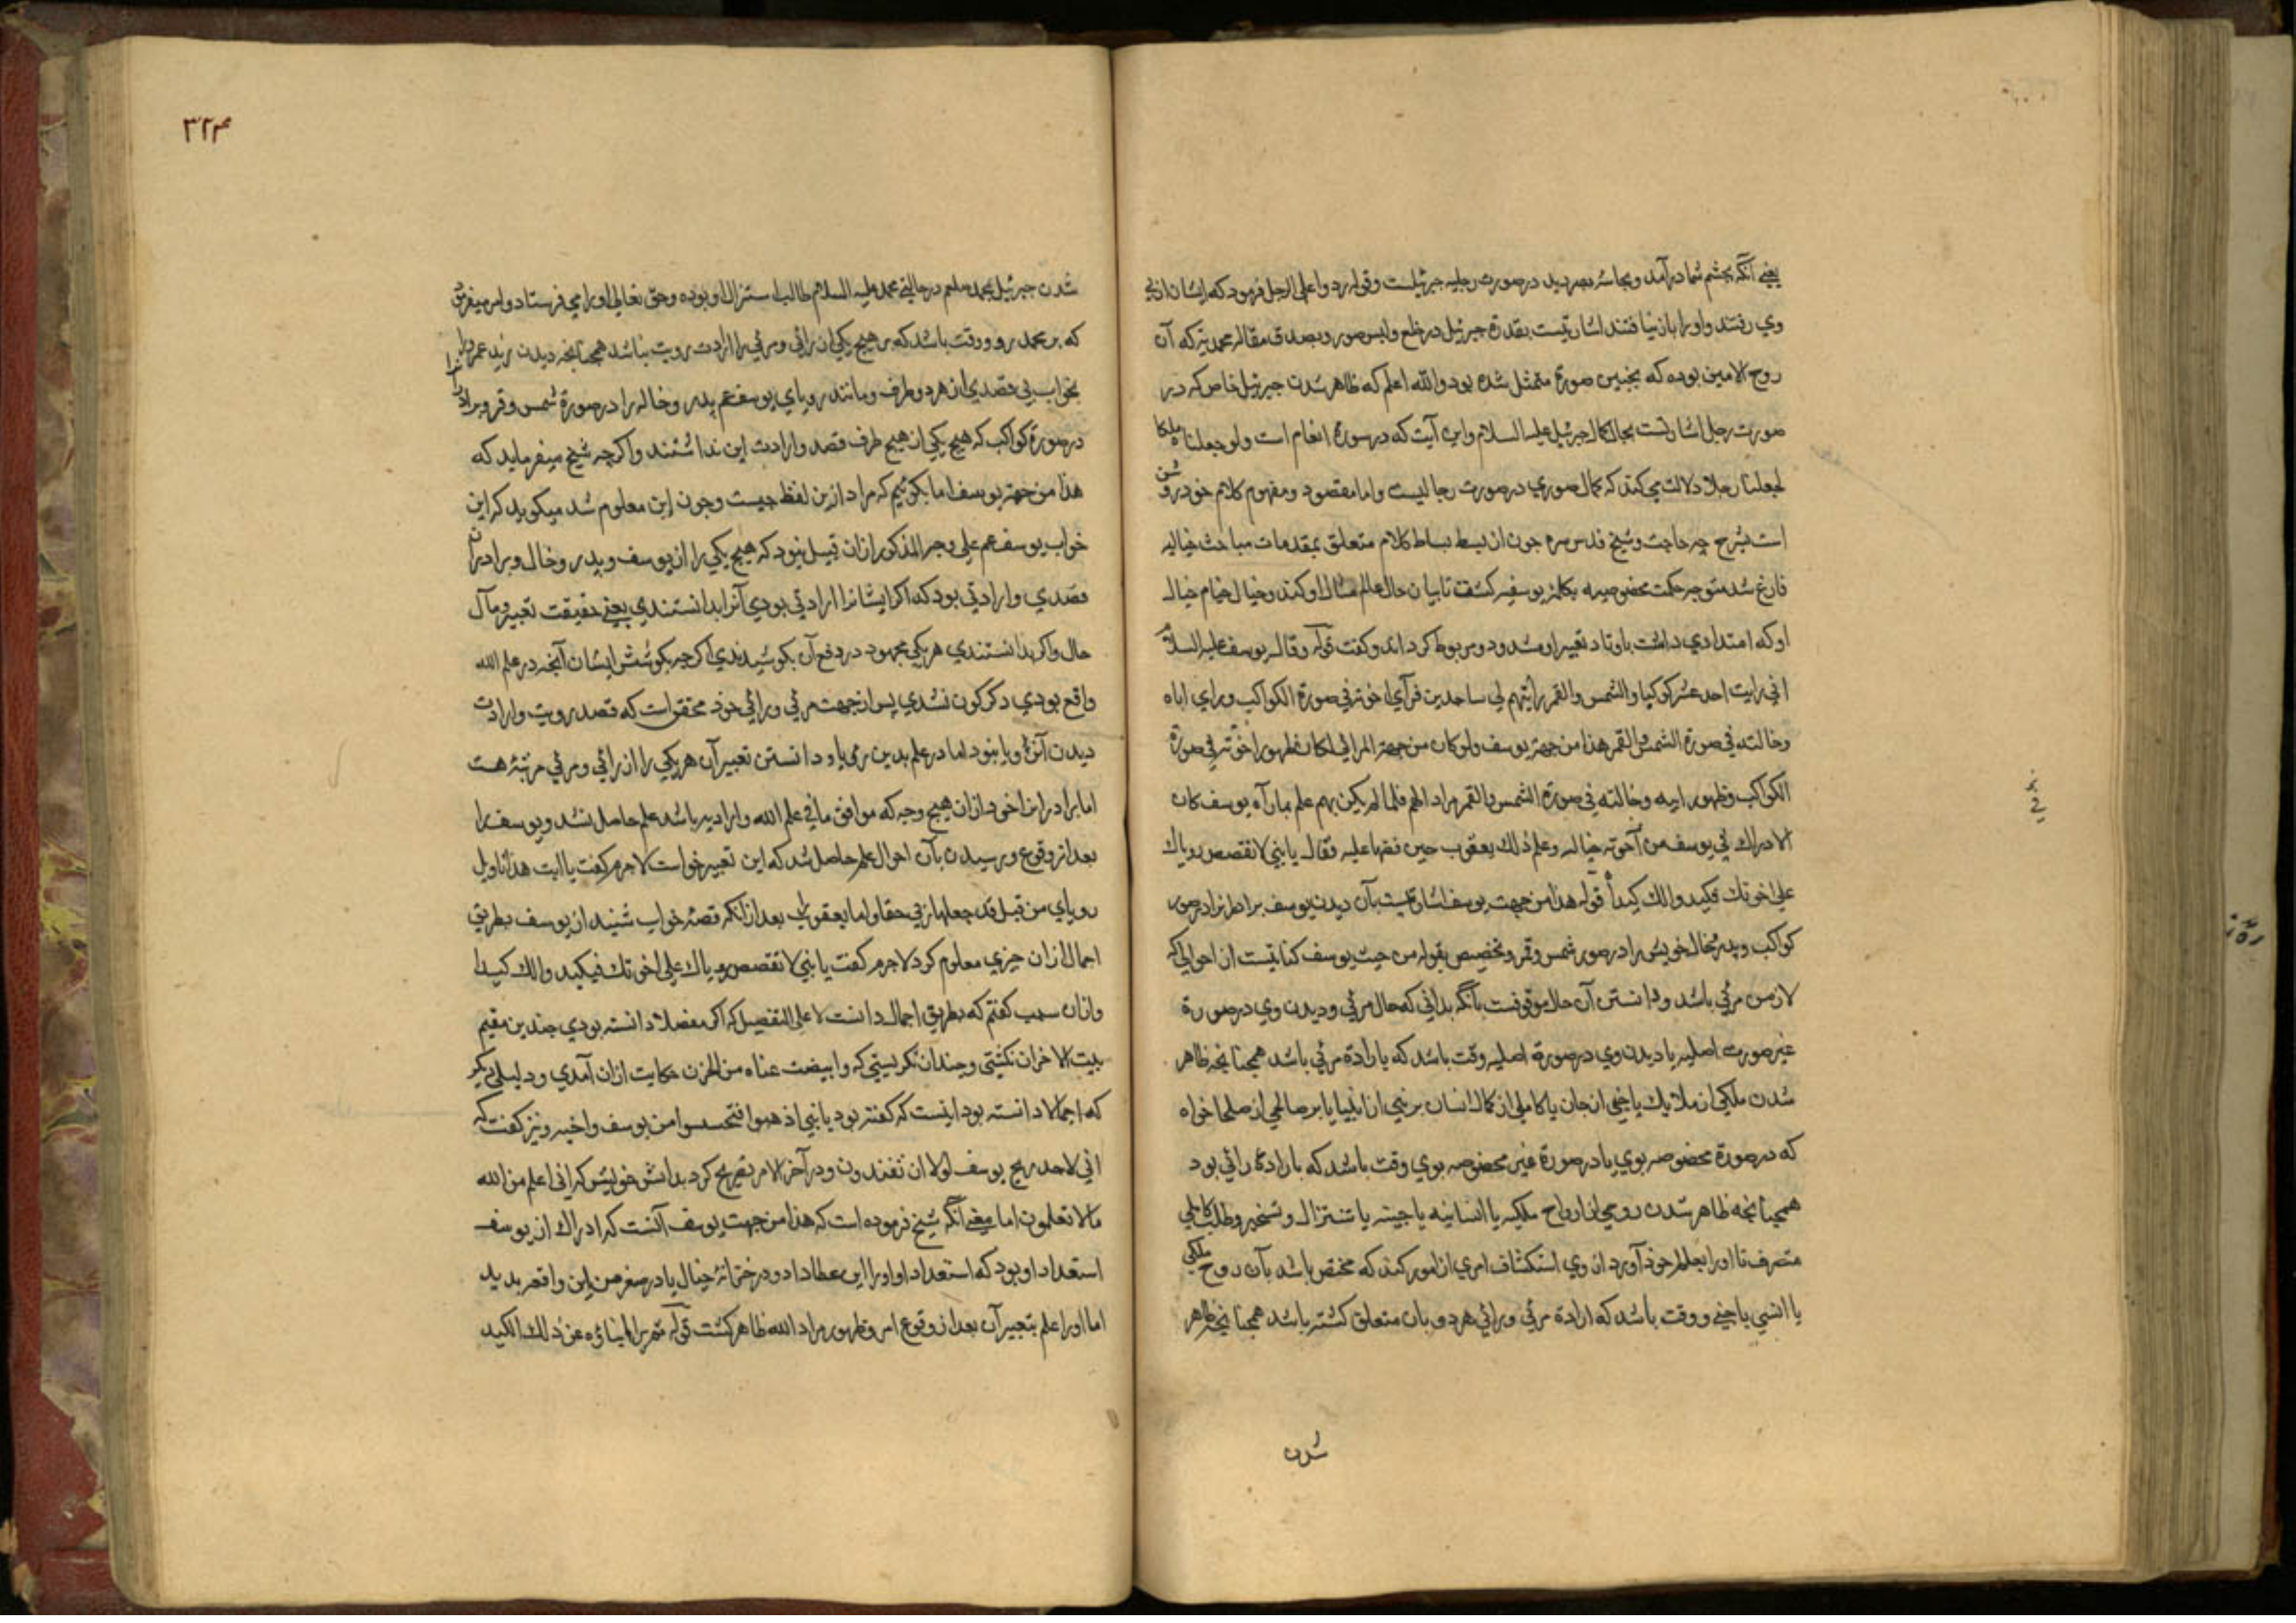 یعنی آنکه بچشم شما درآمد وبحاسهٔ بصر دید در صورت رجلیه جبرئیلست وقوله ردوا علی الرجل فرمود که ایشان از پی
وی رفتند واورا باز نیافتند اشارتیست بقدرة جبرئیل در خلع ولبس صور وبصدق مقاله محمدیه که آن
روح الامین بوده که بچنین صورة متمثل شده بود والله اعلم که ظاهر شدن جبرئیل خاص که در
صورت رجل اشارتست بحال کمال جبرئیل علیه السلام واین آیت که در سورة انعام است ولو جعلناه ملکا
لجعلناه رجلا دلالت می کند که کمال صوری در صورت رجالیست واما مقصود ومفهوم کلام خود روشن
است بشرح چه حاجت وشیخ قدس سره چون از بسط بساط کلام متعلق بمقدمات مباحث خیالیه
فارغ شد متوجه حکمت مخصوصه بکلمهٔ یوسفیه کشت تا بیان حال عالم مثال او کند وخیال خیام خیال
او که امتدادی داشت باوتاد تعبیر او مشدود ومربوط کرداند وکفت قوله وقال یوسف علیه السلام
انی رایت احد عشر کوکبا والشمس والقمر رأیتهم لی ساجدین فرآی اخوته فی صورة الکواکب ورای اباه
وخالته فی صورة الشمس والقمر هذا من جهة یوسف ولو کان من جهة المرائی لکان ظهور اخوته فی صورة
الکواکب وظهور ابیه وخالته فی صورة الشمس والقمر مراد الهم فلما لم یکن بهم علم بما رآه یوسف کان
الادراك فی یوسف من آخوته خیاله وعلم ذلك یعقوب حین قصها علیه فقال یا بنی لا تقصص رویاك
علی اخوتك فیکیدوا لك کیدا قوله هذا من جهت یوسف اشارتیست بآن دیدن یوسف برادرانرا در صور
کواکب وپدر وخال خویش را در صور شمس وقمر وتخصیص بقوله من حیث یوسف کنایتیست از احوالی که
لازمن مرئی باشد ودانستن آن حال موقوفست بآنکه بدانی که حال مرئی ودیدن وی در صورة
غیر صورت اصلیه یا دیدن وی در صورة اصلیه وقت باشد که بارادة مرئی باشد همچنانچه ظاهر
شدن ملکی از ملایك یا جنی از جان یا کاملی از کمال انسان بر نبی از انبیا یا بر صالحی از صلحا خواه
که در صورة مخصوصه بوی یا در صورة غیر مخصوصه بوی وقت باشد که بارادة رائی بود
همچنانچه ظاهر شدن روحی از ارواح ملکیه یا انسانیه یا جنیه یا تنزال وتسخیر وطلب کاملی
متصرف تا اورا بعالم خود آورد از وی استکشاف امری از امور کند که مختص باشد بآن روح ملکی
یا انسی یا جنی ووقت باشد که ارادة مرئی ورائی هر دو بان متعلق کشته باشد همچنانچه ظاهر
شدن
۳۲۴
شدن جبرئیل بمحمد صلعم در حالتی محمد علیه السلام طالب استنزال او بوده وحق تعالی اورا می فرستاد وامر میفرمود
که بر محمد رو ووقت باشد که بر هیچ یکی از رائی ومرئی را ارادت رویت نباشد همچنانچه دیدن زید عمرو را
بخواب بی قصدی از هر دو طرف ومانند رویای یوسف عم پدر وخاله را در صورة شمس وقمر وبرادرانرا
در صورة کواکب که هیچ یکی از هیچ طرف قصد وارادت این نداشتند واکرچه شیخ میفرماید که
هذا من جهة یوسف اما بکوئیم که مراد ازین لفظ چیست وچون این معلوم شد میکوید که این
خواب یوسف عم علی وجه المذکور ازان قبیل نبود که هیچ یکی را از یوسف وپدر وخال وبرادران
قصدی وارادتی بود که اکر ایشانرا ارادتی بودی آنرا بدانستندی یعنی حقیقت تعبیر ومآل
حال واکر بدانستندی هر یکی مجهود در دفع آن بکوشیدندی اکرچه بکوشش ایشان آنچه در علم الله
واقع بودی دکرکون نشدی پس از جهت مرئی ورائی خود محقق است که قصد رویت وارادت
دیدن آن رویا نبود اما در علم بدین رویا ودانستن تعبیر آن هر یکی را از رائی ومرئی مرتبهٔ هست
اما برادرانرا خود ازان هیچ وجه که موافق ما فی علم الله وارادیه باشد علم حاصل نشد ویوسف را
بعد از وقوع ورسیدن بآن احوال علم حاصل شد که این تعبیر خواست لاجرم کفت یا ابت هذا تاویل
رویای من قبل قد جعلها ربی حقا واما یعقوب را بعد ازانکه قصهٔ خواب شنید از یوسف بطریق
اجمال ازان چیزی معلوم کرد لاجرم کفت یا بنی لا تقصص رویاك علی اخوتك فیکیدوا لك کیدا
وازان سبب کفتم که بطریق اجمال دانست لا علی التفصیل که اکر مفصلا دانسته بودی چندین مقیم
بیت الاحزان نکشتی وچندان نکریستی که وابیضت عیناه من الحزن حکایت ازان آمدی ودلیلی دیکر
که اجمالا دانسته بود اینست که کفته بود یا بنی اذهبوا فتحسسوا من یوسف واخیه ونیز کفت که
انی لاجد ریح یوسف لولا ان تفندون ودر آخر الامر تصریح کرد بدانش خویش که انی اعلم من الله
ما لا تعلمون اما معنی آنکه شیخ فرموده است که هذا من جهت یوسف آنست که ادراك از یوسف
استعداد او بود که استعداد او اورا این عطا داد ودر خزانهٔ خیال یا در صغر سن این واقعه بدید
اما اورا علم بتعبیر آن بعد از وقوع امر وظهور مراد الله ظاهر کشت قوله ثم برا ابناؤه عن ذلك الکید